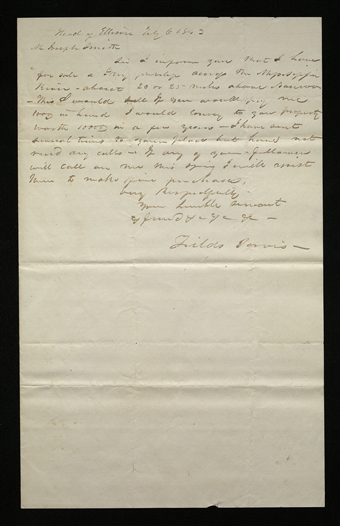 Head of Illinois July 6 1842
Mr Joseph Smith
Sir I inform you that I have
for sale a Ferry privilege across the Mississippi
River - about 20 or 25 miles above Nauvoo
- This I would sell If you would pay me
in hand I would convey to you property
worth in a few years - I have sent
several times to your place but have not
recd any calls - If any of your followers
will call on me this Spring I will assist
them to make fine purchase,
very Respectfully -
Your humble servant
& friend &c &c &c -
Fields Jarvis -